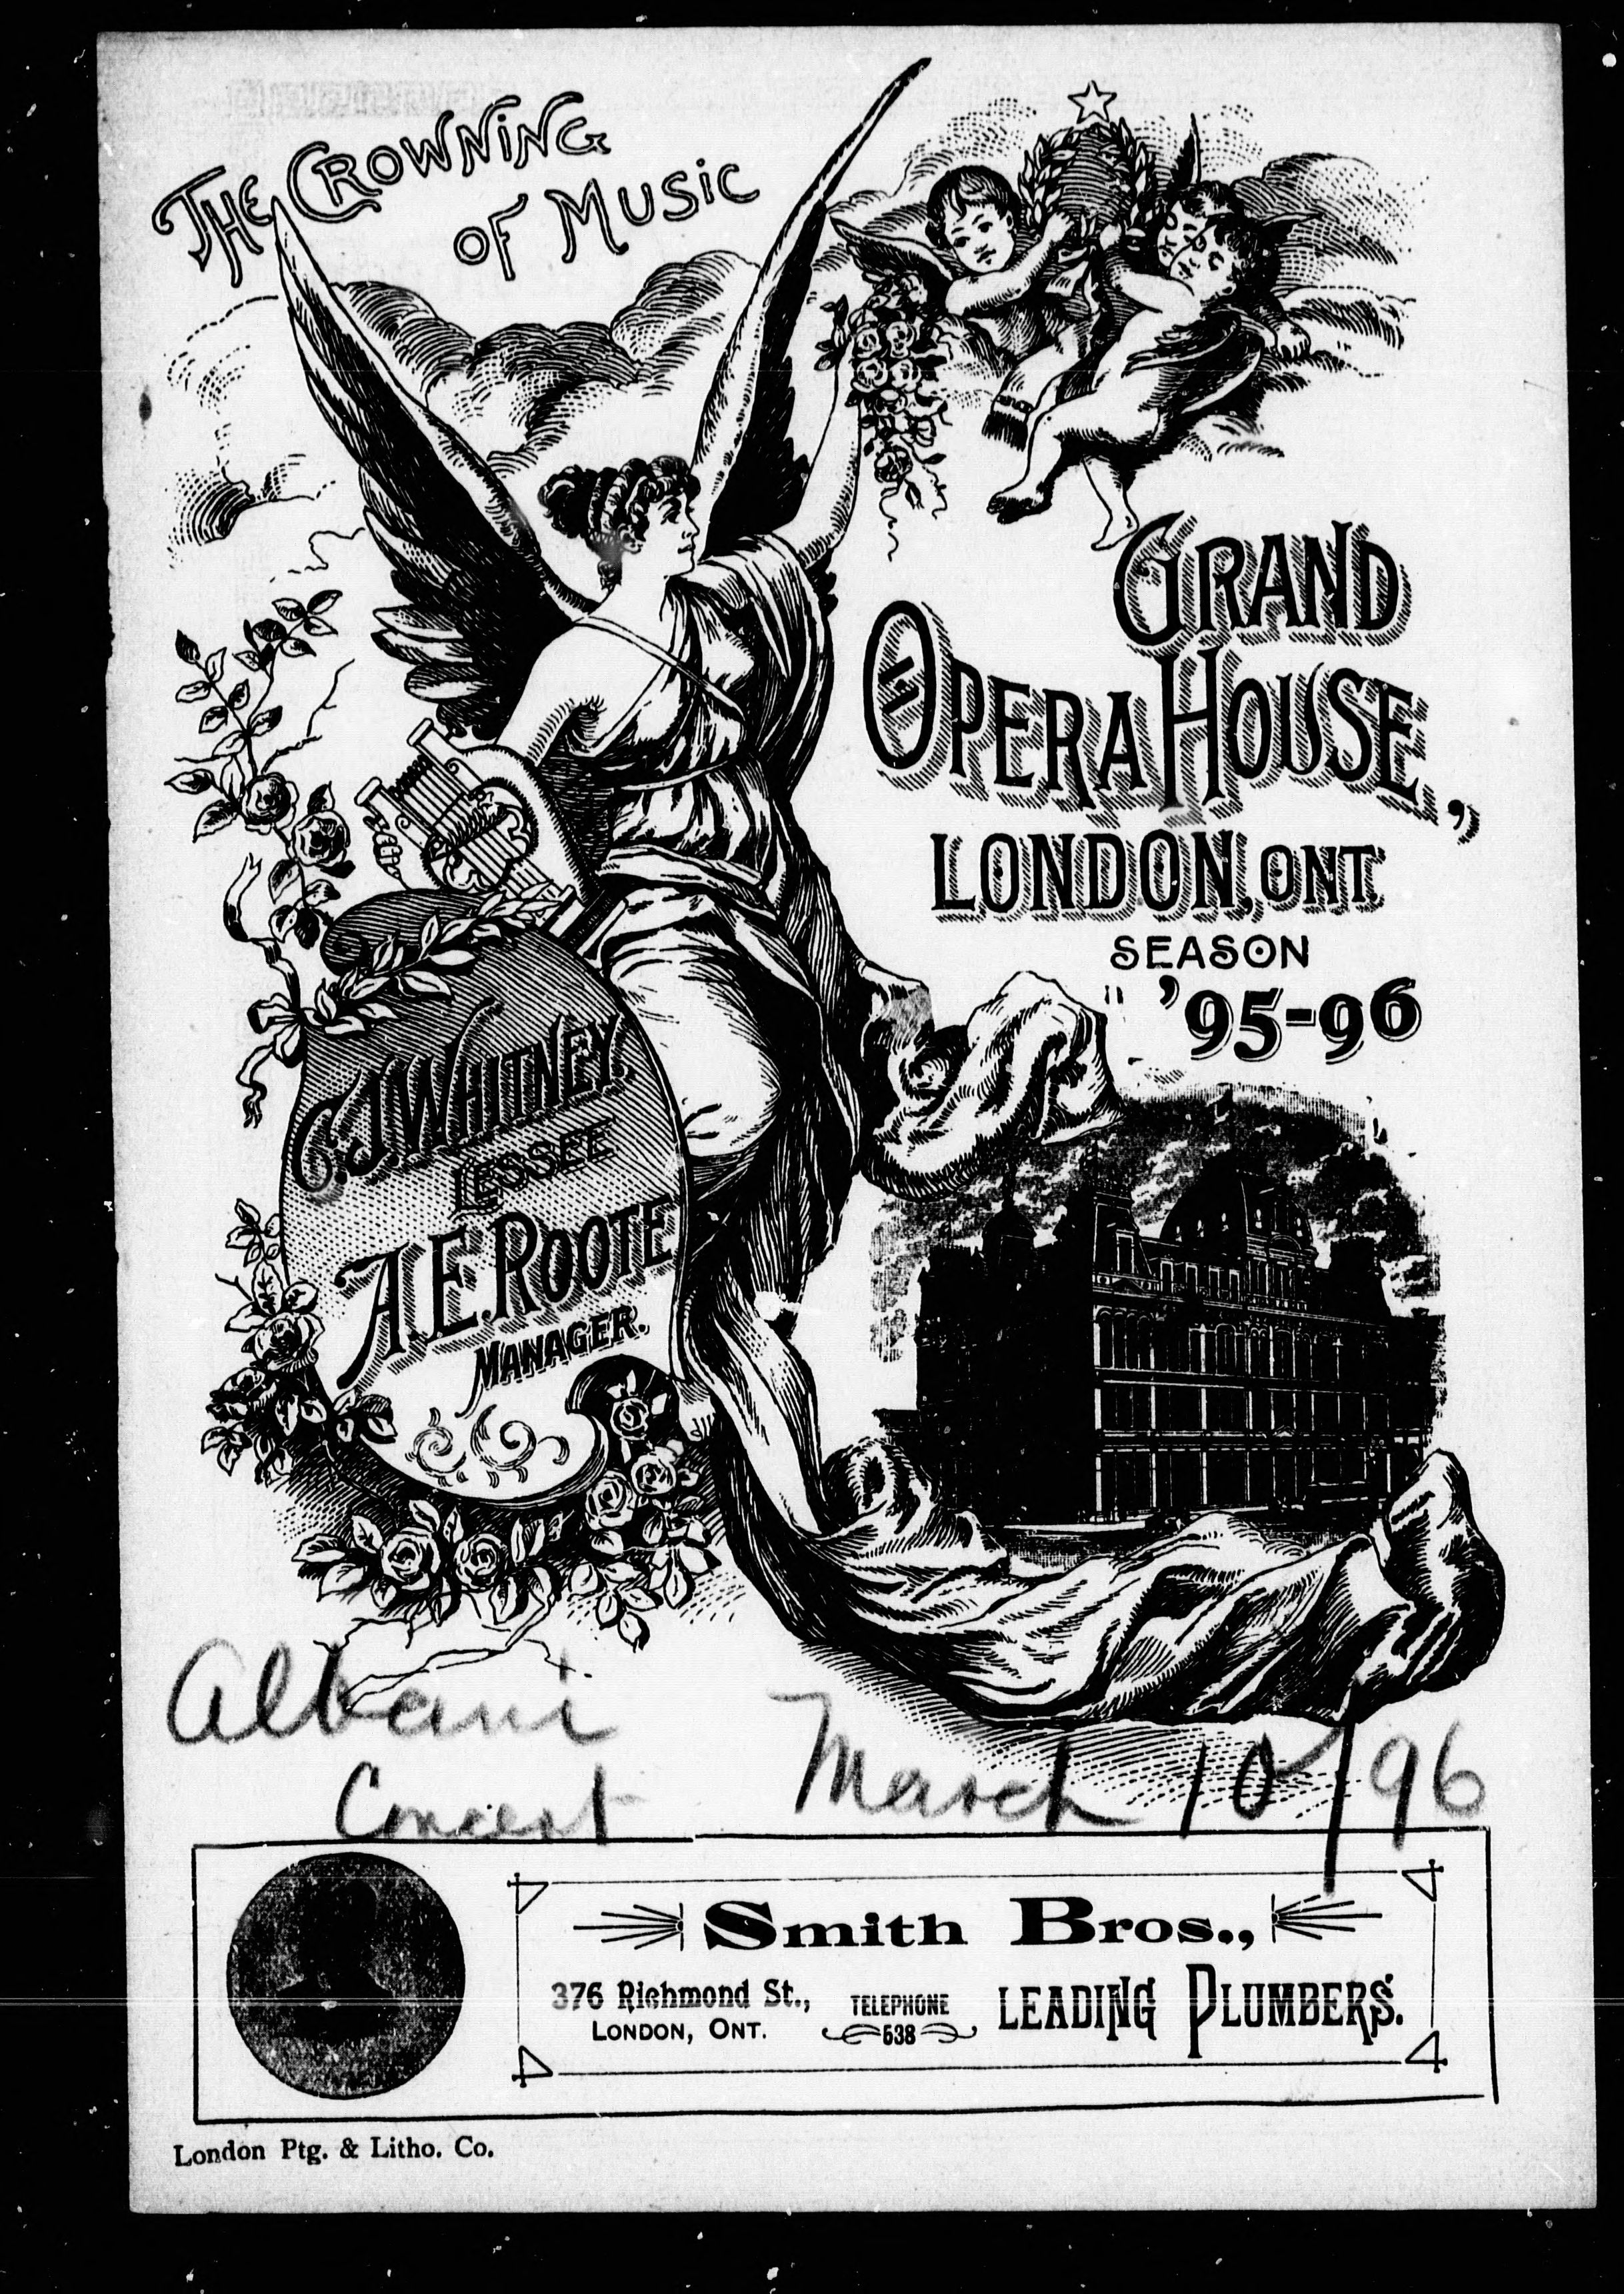 THE CROWNING
OF MUSIC
GRAND
OPERA HOUSE,
LONDON, ONT.
SEASON
'95-96
C. J. WHITNEY,
LESSEE
A. E. ROOTE
MANAGER.
Albani
Concert
March 10/96
Smith Bros.,
376 Richmond St.,
LONDON, ONT.
TELEPHONE
538
LEADING PLUMBERS.
London Ptg. & Litho. Co.